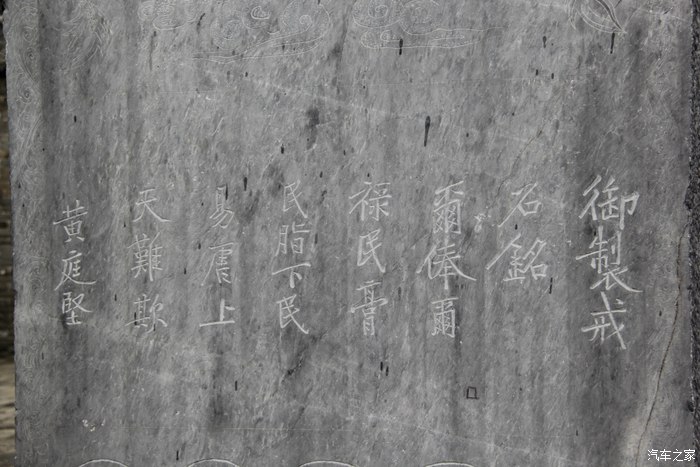 御製戒
石銘
爾俸爾
祿民膏
民脂下民
易虐上
天難欺
黃庭堅
汽车之家